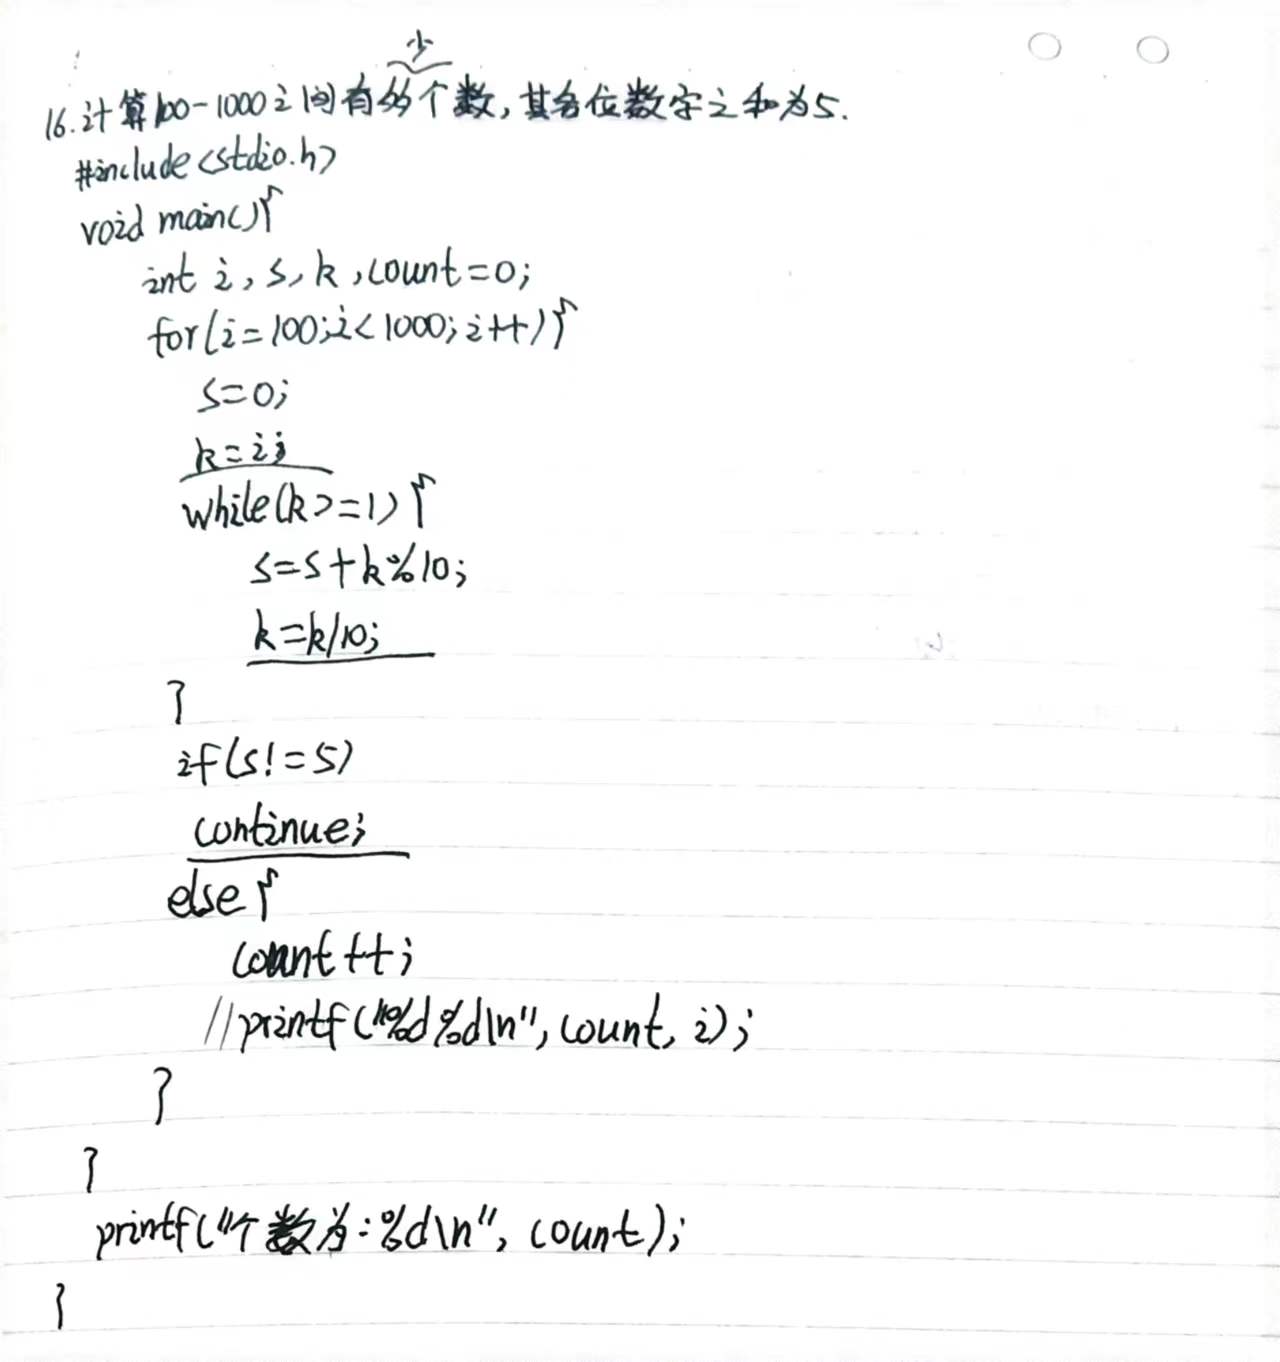 16.计算100-1000之间有多少个数,其各位数字之和为5.
#include<stdio.h>
void main(){
int i, s, k, count=0;
for(i=100;i<1000;i++){
s=0;
k=i;
while(k>=1){
s=s+k%10;
k=k/10;
}
if(s!=5)
continue;
else{
count++;
//printf("%d%d\n", count, i);
}
}
printf("个数为:%d\n", count);
}